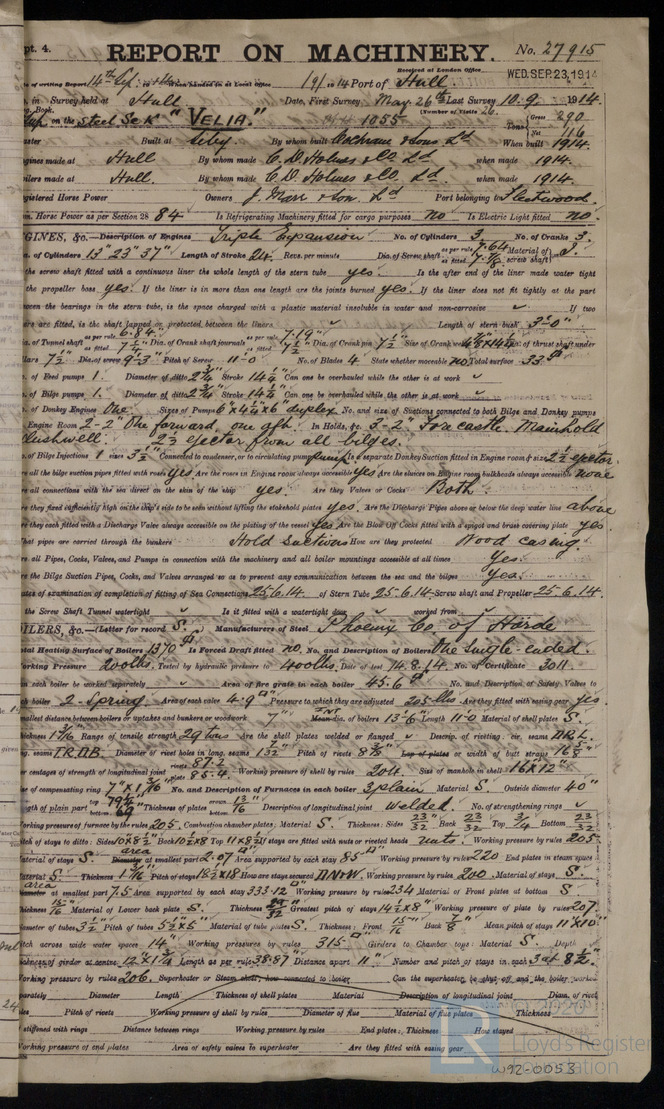 pt. 4.
REPORT ON MACHINERY.
No. 27915
Received at London Office
WED. SEP. 23, 1914
of writing Report 14th Sep. When handed in at Local Office 19/9 1914 Port of Hull.
in Survey held at Hull Date, First Survey May 26th Last Survey 10.9. 1914.
Book. (Number of Visits 26
on the Steel Sc K "VELIA." 1055 Tons Gross 290 Net 116
Built at Selby By whom built Cochrane & Sons Ld When built 1914.
ngines made at Hull By whom made C. D. Holmes & Co. Ld when made 1914.
oilers made at Hull. By whom made C. D. Holmes & Co. Ld. when made 1914.
gistered Horse Power Owners J. Marr & Son. Ld Port belonging to Fleetwood.
m. Horse Power as per Section 28 84 Is Refrigerating Machinery fitted for cargo purposes no Is Electric Light fitted no.
NGINES, &c.—Description of Engines Triple Expansion No. of Cylinders 3 No. of Cranks 3.
a. of Cylinders 13" 23" 37" Length of Stroke 24 Revs. per minute Dia. of Screw shaft as per rule 7.64 as fitted 7 7/8 Material of screw shaft S.
the screw shaft fitted with a continuous liner the whole length of the stern tube yes. Is the after end of the liner made water tight
the propeller boss yes. If the liner is in more than one length are the joints burned yes. If the liner does not fit tightly at the part
ween the bearings in the stern tube, is the space charged with a plastic material insoluble in water and non-corrosive If two
ers are fitted, is the shaft lapped or protected between the liners Length of stern bush 3'-0"
ia. of Tunnel shaft as per rule 6.84 as fitted Dia. of Crank shaft journals as per rule 7.19 as fitted 7 1/2 Dia. of Crank pin 7 1/2 Size of Crank webs of thrust shaft under
llars 7 1/2 Dia. of screw 9'-3" Pitch of Screw 11'-0 No. of Blades 4 State whether moveable no Total surface 33
of Feed pumps 1. Diameter of ditto 2 3/4 Stroke 14 1/4 Can one be overhauled while the other is at work
of Bilge pumps 1. Diameter of ditto 2 3/4 Stroke 14 1/4 Can one be overhauled while the other is at work
of Donkey Engines One Sizes of Pumps 6" x 4 1/4 x 6" duplex No. and size of Suctions connected to both Bilge and Donkey pumps
Engine Room 2-2" One forward, one aft. In Holds, &c. 3-2" Forecastle. Mainhold
slushwell. ejector from all bilges.
o. of Bilge Injections 1 sizes 3 1/2 Connected to condenser, or to circulating pump pump Is a separate Donkey Suction fitted in Engine room & size 2 1/2 ejector.
re all the bilge suction pipes fitted with roses yes. Are the roses in Engine room always accessible yes Are the sluices on Engine room bulkheads always accessible none
re all connections with the sea direct on the skin of the ship yes. Are they Valves or Cocks Both.
re they fixed sufficiently high on the ship's side to be seen without lifting the stokehold plates yes. Are the Discharge Pipes above or below the deep water line above
re they each fitted with a Discharge Valve always accessible on the plating of the vessel yes Are the Blow Off Cocks fitted with a spigot and brass covering plate yes.
hat pipes are carried through the bunkers Hold Suctions How are they protected Wood casing.
re all Pipes, Cocks, Valves, and Pumps in connection with the machinery and all boiler mountings accessible at all times Yes.
re the Bilge Suction Pipes, Cocks, and Valves arranged so as to prevent any communication between the sea and the bilges Yes.
ates of examination of completion of fitting of Sea Connections 25.6.14. of Stern Tube 25-6.14. Screw shaft and Propeller 25.6.14.
the Screw Shaft Tunnel watertight Is it fitted with a watertight door worked from
OILERS, &c.—(Letter for record S.) Manufacturers of Steel Phoenix Co. of Hörde
otal Heating Surface of Boilers 1370 Is Forced Draft fitted no. No. and Description of Boilers One Single-ended.
orking Pressure 200lbs. Tested by hydraulic pressure to 400lbs. Date of test 14.8.14. No. of Certificate 3011
an each boiler be worked separately Area of fire grate in each boiler 45.6 No. and Description of Safety Valves to
ch boiler 2-Spring. Area of each valve 4.9 Pressure to which they are adjusted 205lbs. Are they fitted with easing gear yes.
mallest distance between boilers or uptakes and bunkers or woodwork 7" Mean dia. of boilers 13'-6 Length 11-0 Material of shell plates S.
hickness 1 3/16 Range of tensile strength 29 tons Are the shell plates welded or flanged Descrip. of riveting: cir. seams D.R.L.
ng. seams T.R.D.B. Diameter of rivet holes in long. seams 1 7/32 Pitch of rivets 8 3/8 Lap of plates or width of butt straps 16 5/8"
er centages of strength of longitudinal joint rivets 87.2 plate 85.4. Working pressure of shell by rules 204. Size of manhole in shell 16" x 12"
ze of compensating ring 7" x 1 3/16 No. and Description of Furnaces in each boiler 3 plain Material S. Outside diameter 40"
ngth of plain part top 79 1/2 bottom 69 Thickness of plates crown bottom 13/16 Description of longitudinal joint welded. No. of strengthening rings
orking pressure of furnace by the rules 205. Combustion chamber plates: Material S. Thickness: Sides 23/32 Back 23/32 Top 3/4 Bottom 23/32
itch of stays to ditto: Sides 10 x 8 1/2 Back 10 1/2 x 8 Top 11 x 8 1/2 If stays are fitted with nuts or riveted heads nuts. Working pressure by rules 205
aterial of stays S. area Diameter at smallest part 2.07 Area supported by each stay 85 Working pressure by rules 220 End plates in steam space
aterial S. Thickness 1 1/16 Pitch of stays 18 1/2 x 18 How are stays secured D.N.&W. Working pressure by rules 200 Material of stays S.
area Diameter at smallest part 7.5 Area supported by each stay 333.12 Working pressure by rules 234 Material of Front plates at bottom S
Thickness 15/16 Material of Lower back plate S. Thickness 27/32 Greatest pitch of stays 14 1/2 x 8" Working pressure of plate by rules 207
iameter of tubes 3 1/2 Pitch of tubes 5 1/2 x 5" Material of tube plates S. Thickness: Front 15/16 Back 7/8" Mean pitch of stays 11" x 10"
itch across wide water spaces 14" Working pressures by rules 315 Girders to Chamber tops: Material S. Depth
hickness of girder at centre 12 x 1 3/4 Length as per rule 38.87 Distance apart 11" Number and pitch of stays in each 3 at 8 1/2.
orking pressure by rules 206. Superheater or Steam chest; how connected to boiler Can the superheater be shut off and the boiler worked
parately Diameter Length Thickness of shell plates Material Description of longitudinal joint Diam. of rivet
les Pitch of rivets Working pressure of shell by rules Diameter of flue Material of flue plates Thickness
stiffened with rings Distance between rings Working pressure by rules End plates: Thickness How stayed
orking pressure of end plates Area of safety valves to superheater Are they fitted with easing gear
2020
LR
Lloyd's Register
Foundation
W92-0053